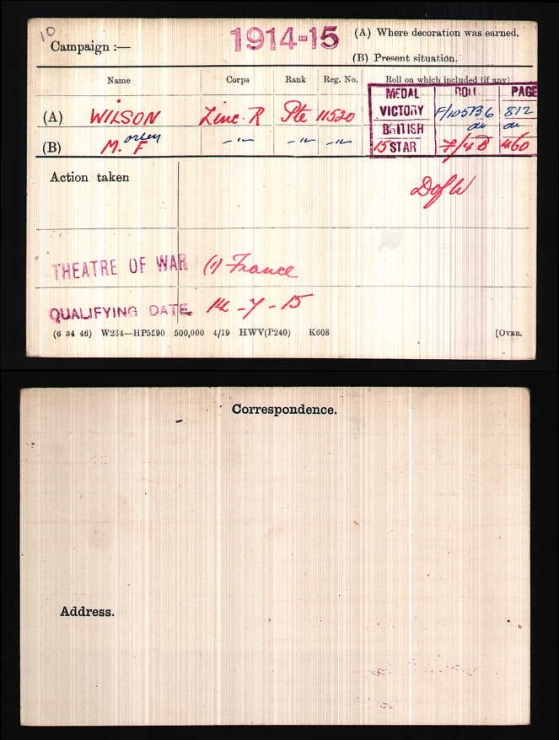 10
Campaign :— 1914-15 (A) Where decoration was earned.
(B) Present situation.
Name Corps Rank Reg. No. Roll on which included (if any)
MEDAL ROLL PAGE
(A) WILSON Linc. R Pte 11520 VICTORY F/105B6 812
BRITISH do do
(B) M. F orley —"— —"— —"— 15 STAR F/4B 460
Action taken D of W
THEATRE OF WAR (1) France
QUALIFYING DATE 14-7-15
(6 34 46) W234—HP5590 500,000 4/19 HWV(P240) K608 [OVER.
Correspondence.
Address.